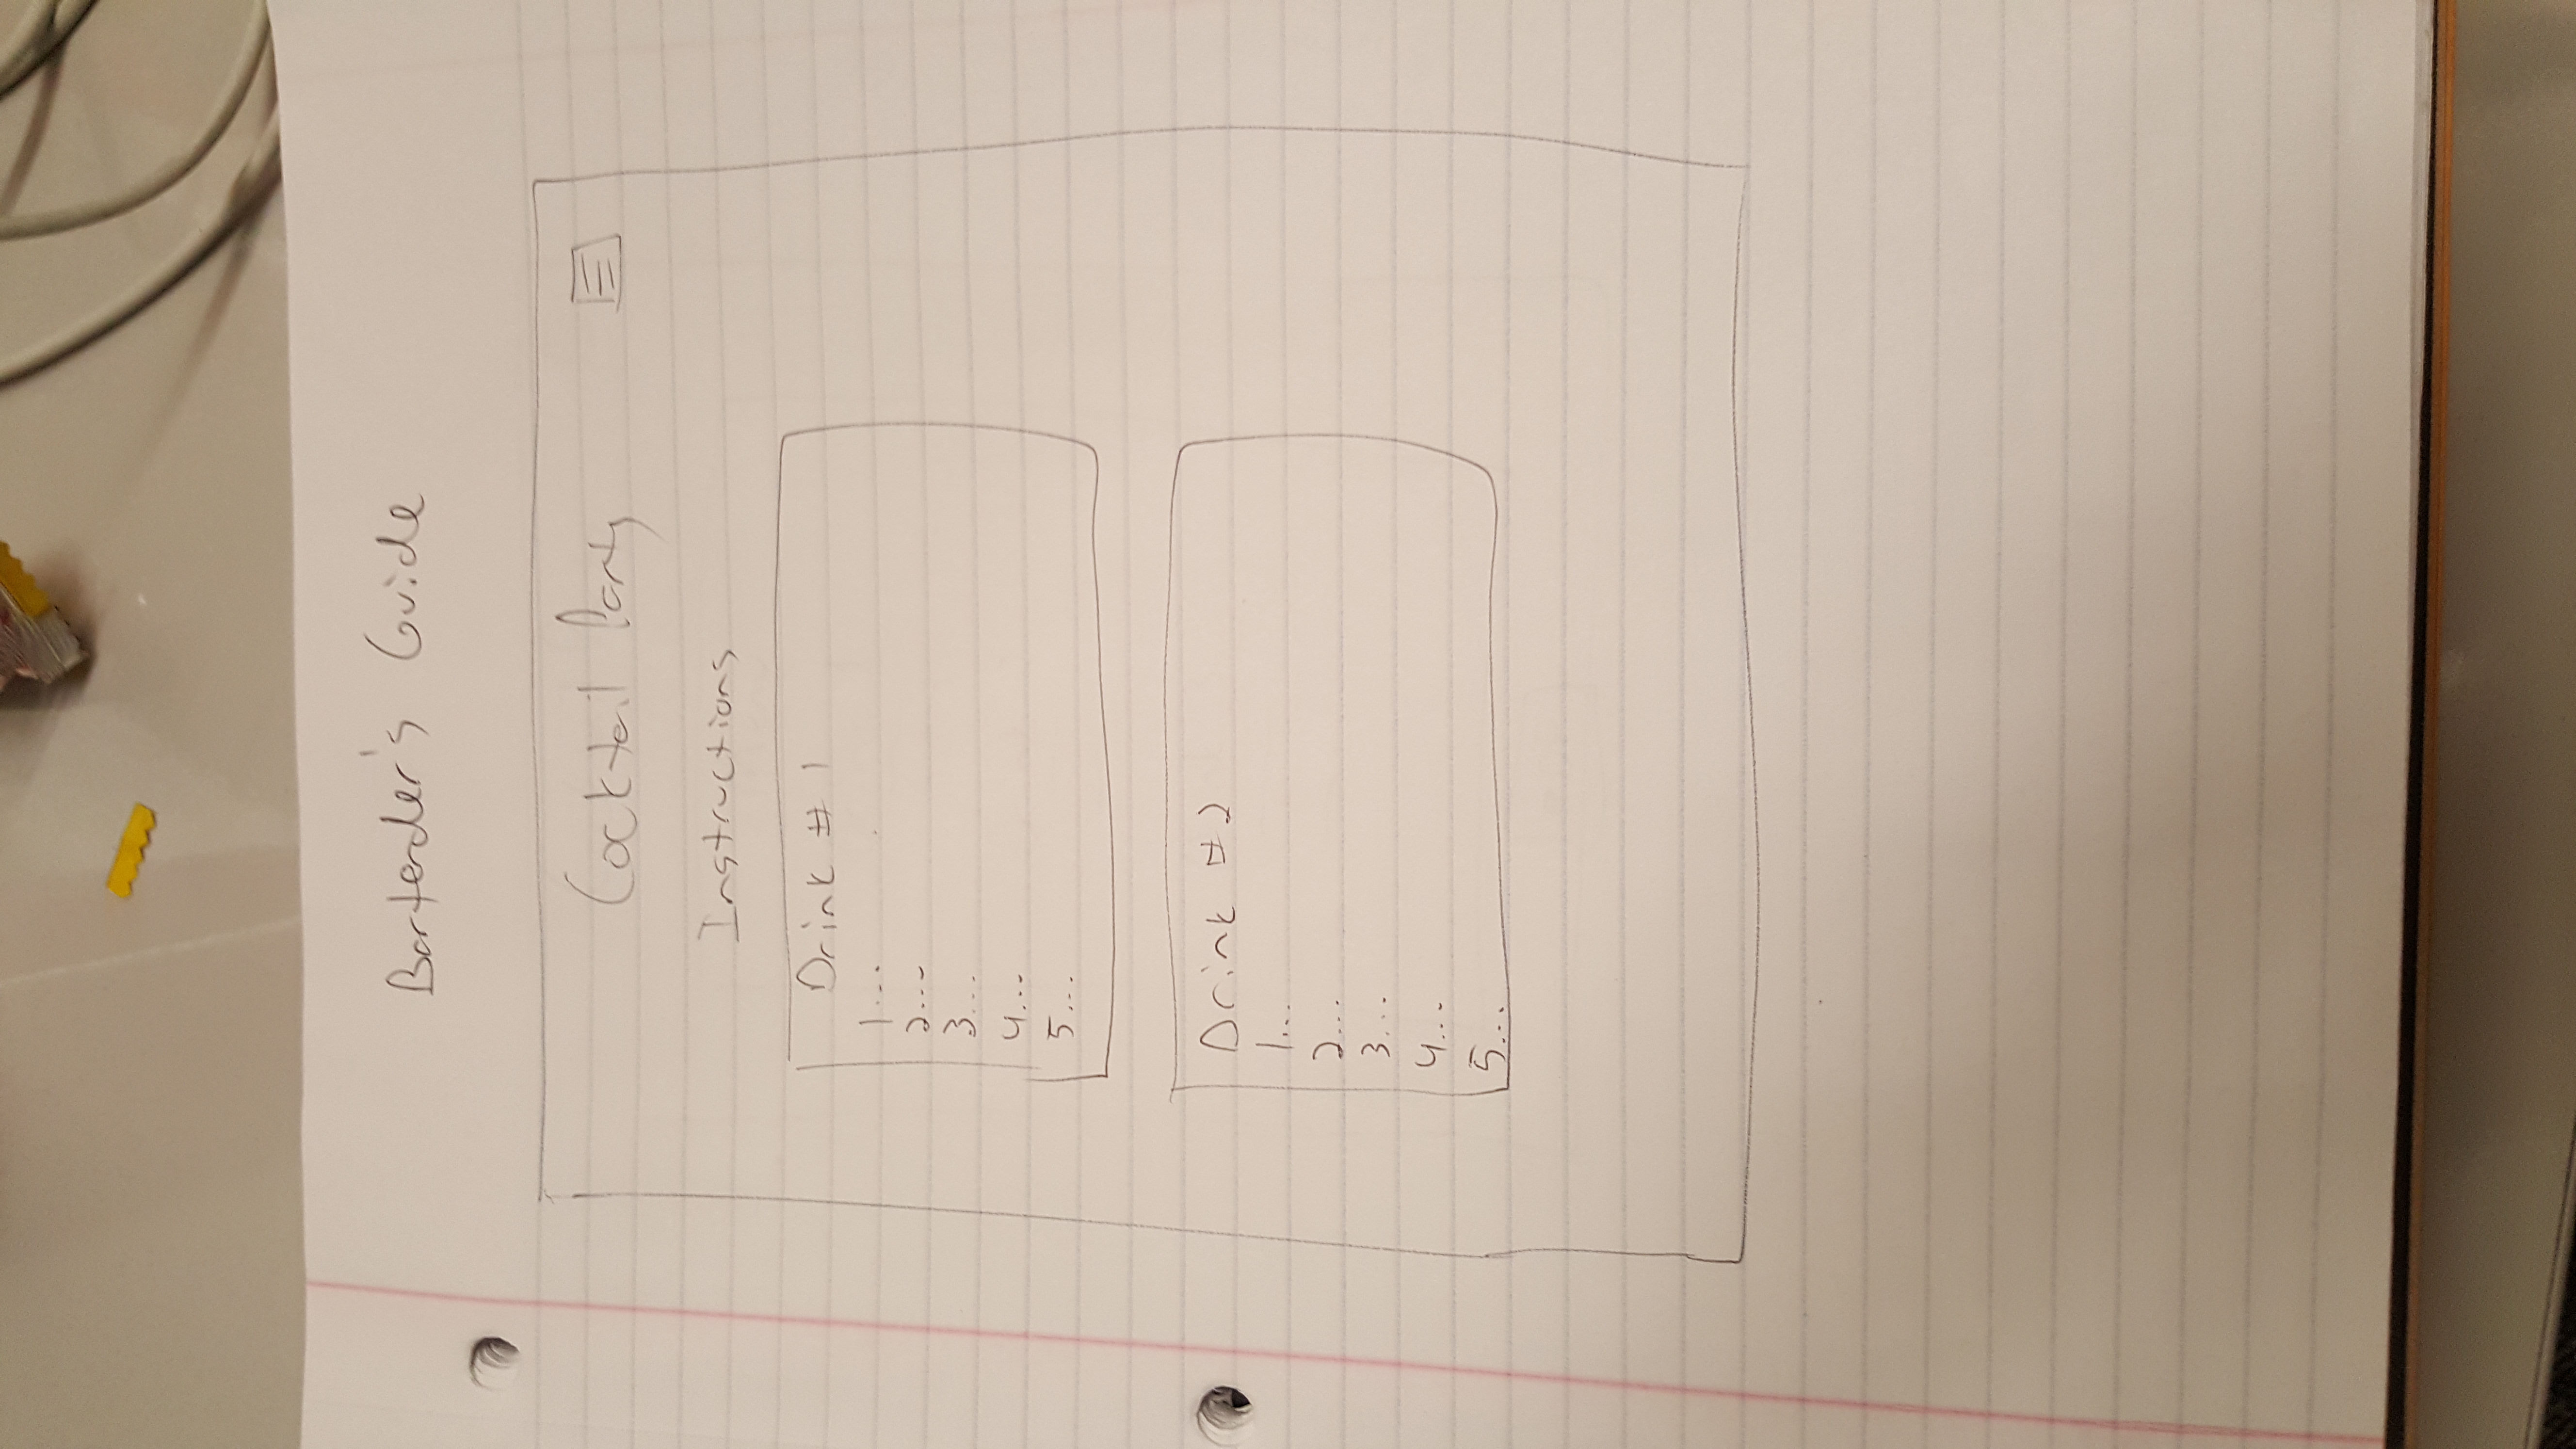 Bartender's Guide
Cocktail Party
Instructions
Drink # 1
1...
2...
3...
4...
5...
Drink #2
1...
2...
3...
4...
5...